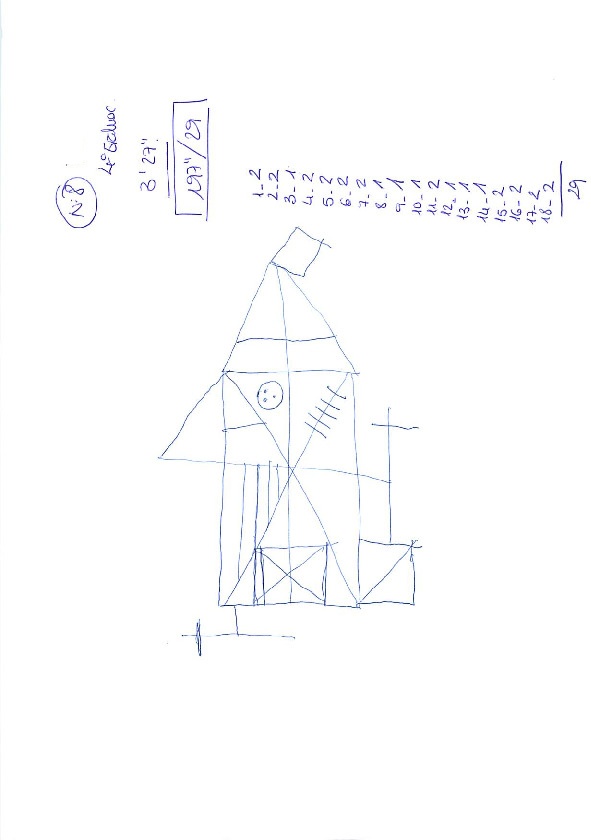 N:8
4º
3'27''
197''/29
1-2
2-2
3-1
4-2
5-2
6-2
7-2
8-1
9-1
10-1
11-2
12-1
13-1
14-1
15-2
16-2
17-2
18-2
29